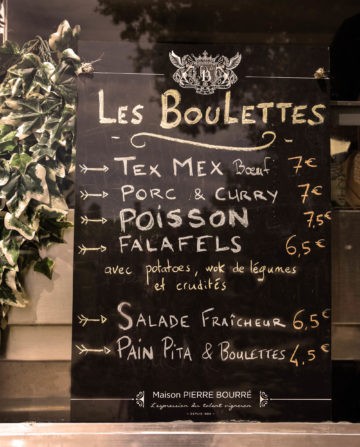 B
LES BOULETTES
TEX MEX Bœuf 7€
PORC & CURRY 7€
POISSON 7,5€
FALAFELS 6,5€
avec potatoes, wok de légumes
et crudités
SALADE FRAÎCHEUR 6,5€
PAIN PITA & BOULETTES 4,5€
Maison PIERRE BOURRÉ
L'expression du talent vigneron